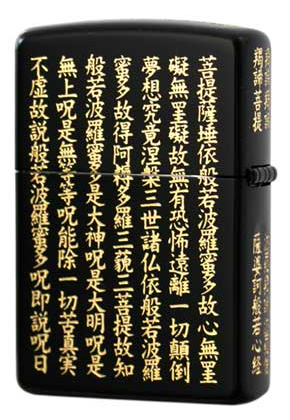 菩提薩埵依般若波羅蜜多故心無罣
礙無罣礙故無有恐怖遠離一切顛倒
夢想究竟涅槃三世諸仏依般若波羅
蜜多故得阿耨多羅三藐三菩提故知
般若波羅蜜多是大神呪是大明呪是
無上呪是無等等呪能除一切苦真実
不虚故説般若波羅蜜多呪即説呪曰
羯諦菩提
薩婆訶般若心経